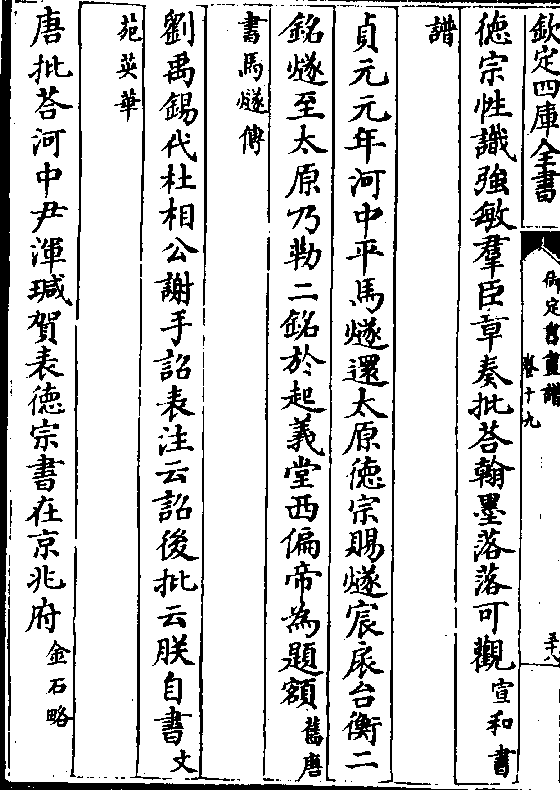 欽定四庫全書
御定書畫譜
卷十九
徳宗性識強敏羣臣章奏批荅翰墨落落可觀宣和書
譜
貞元元年河中平馬燧還太原徳宗賜燧宸扆台衡二
銘燧至太原乃勒二銘於起義堂西偏帝為題額舊唐
書馬燧傳
劉禹錫代杜相公謝手詔表注云詔後批云朕自書文
苑英華
唐批荅河中尹渾瑊賀表徳宗書在京兆府金石略